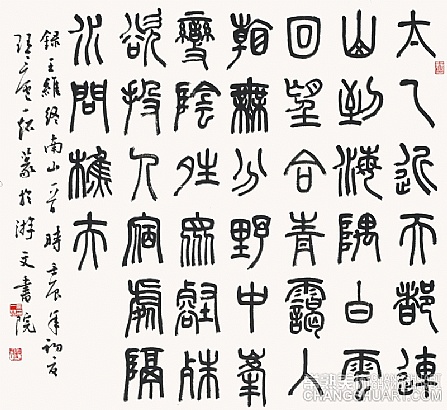 太乙近天都連
山到海隅白雲
回望合青靄入
看無分野中峯
變陰晴眾壑殊
欲投人宿處隔
水問樵夫
錄王維終南山一首 時壬辰年初夏
篆於游文書院
CHANGCHUART.COM